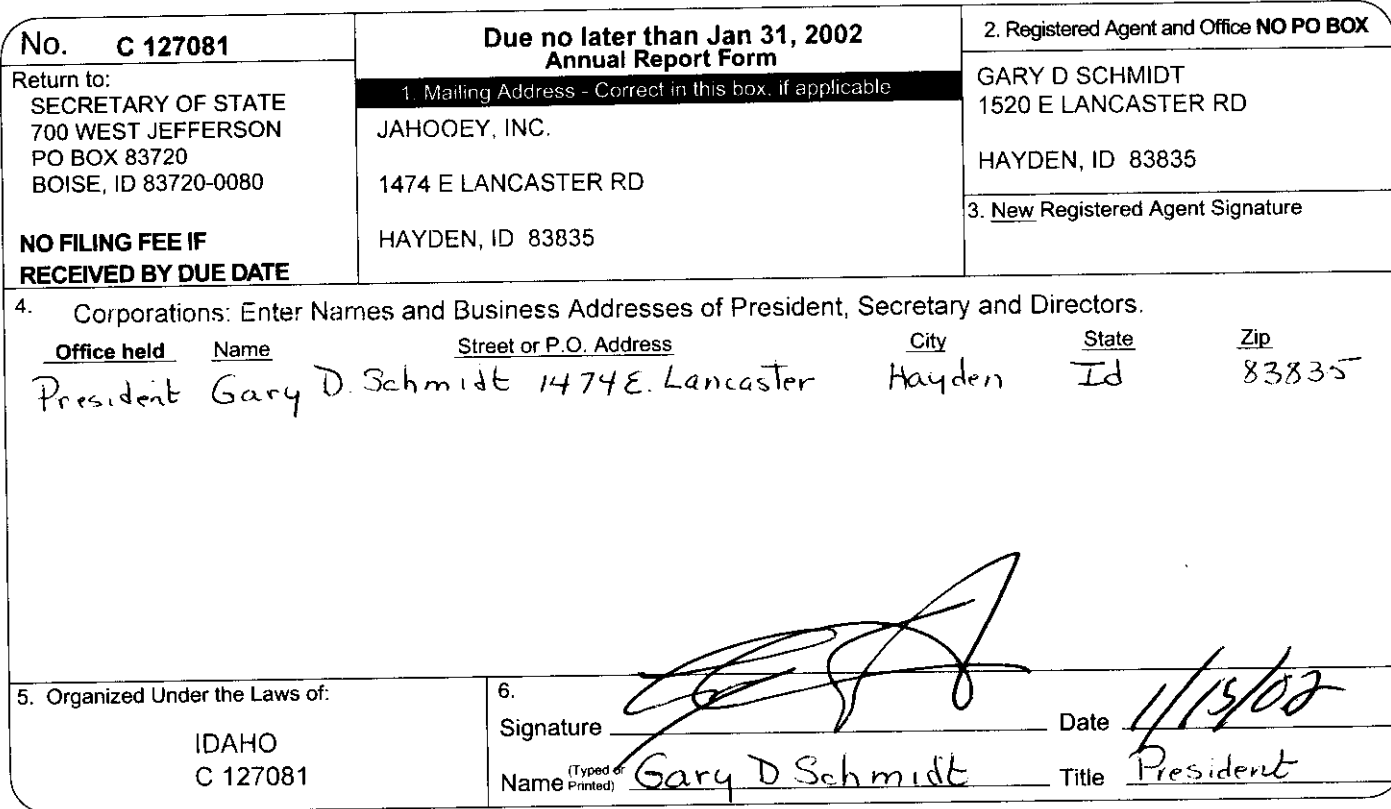 No. C 127081
Return to:
SECRETARY OF STATE
700 WEST JEFFERSON
PO BOX 83720
BOISE, ID 83720-0080
NO FILING FEE IF
RECEIVED BY DUE DATE
Due no later than Jan 31, 2002
Annual Report Form
1. Mailing Address - Correct in this box, if applicable
JAHOOEY, INC.
1474 E LANCASTER RD
HAYDEN, ID 83835
2. Registered Agent and Office NO PO BOX
GARY D SCHMIDT
1520 E LANCASTER RD
HAYDEN, ID 83835
3. New Registered Agent Signature
4. Corporations: Enter Names and Business Addresses of President, Secretary and Directors.
Office held Name Street or P.O. Address City State Zip
President Gary D. Schmidt 1474 E. Lancaster Hayden Id 83835
5. Organized Under the Laws of:
IDAHO
C 127081
6.
Signature Date 1/15/02
Name (Typed or Printed) Gary D Schmidt Title President